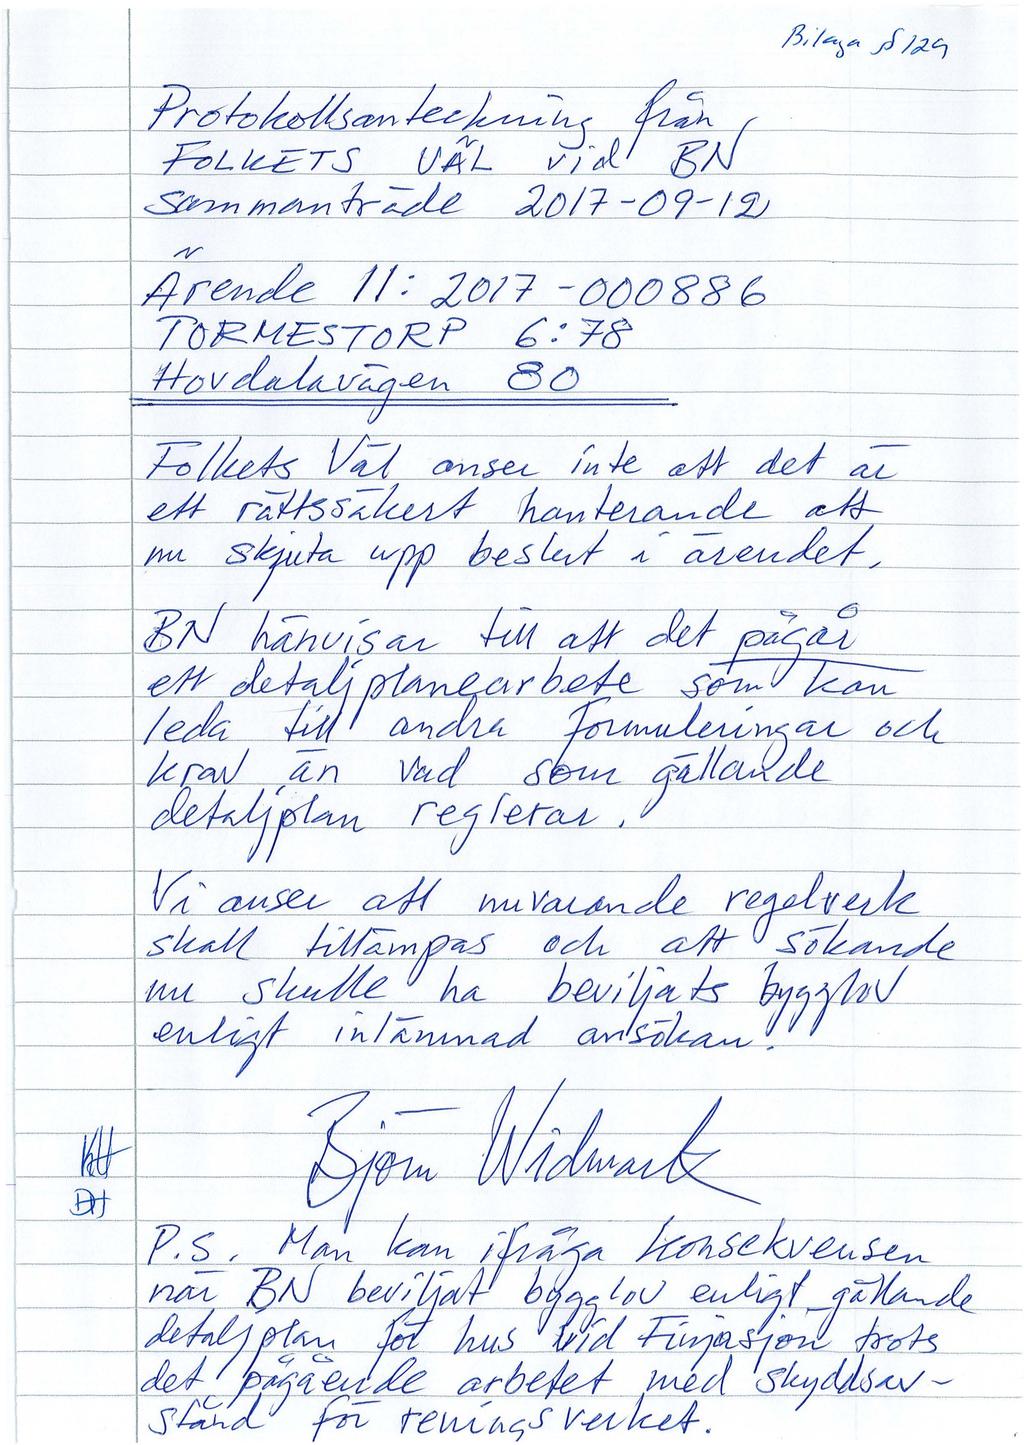 Bilaga § 129
Protokollsanteckning från
FOLKETS VÄL vid BN
sammanträde 2017-09-12
Ärende 11: 2017-000886
TORMESTORP 6:78
Hovdalavägen 80
Folkets Väl anser inte att det är
ett rättssäkert hanterande att
nu skjuta upp beslut i ärendet.
BN hänvisar till att det pågår
ett detaljplanearbete som kan
leda till andra formuleringar och
krav än vad som gällande
detaljplan reglerar.
Vi anser att nuvarande regelverk
skall tillämpas och att sökande
nu skulle ha beviljats bygglov
enligt inlämnad ansökan.
Björn Widmark
KH
DH
P.S. Man kan ifråga konsekvensen
när BN beviljat bygglov enligt gällande
detaljplan för hus vid Finjasjön trots
det pågående arbetet med skyddsav-
stånd för reningsverket.